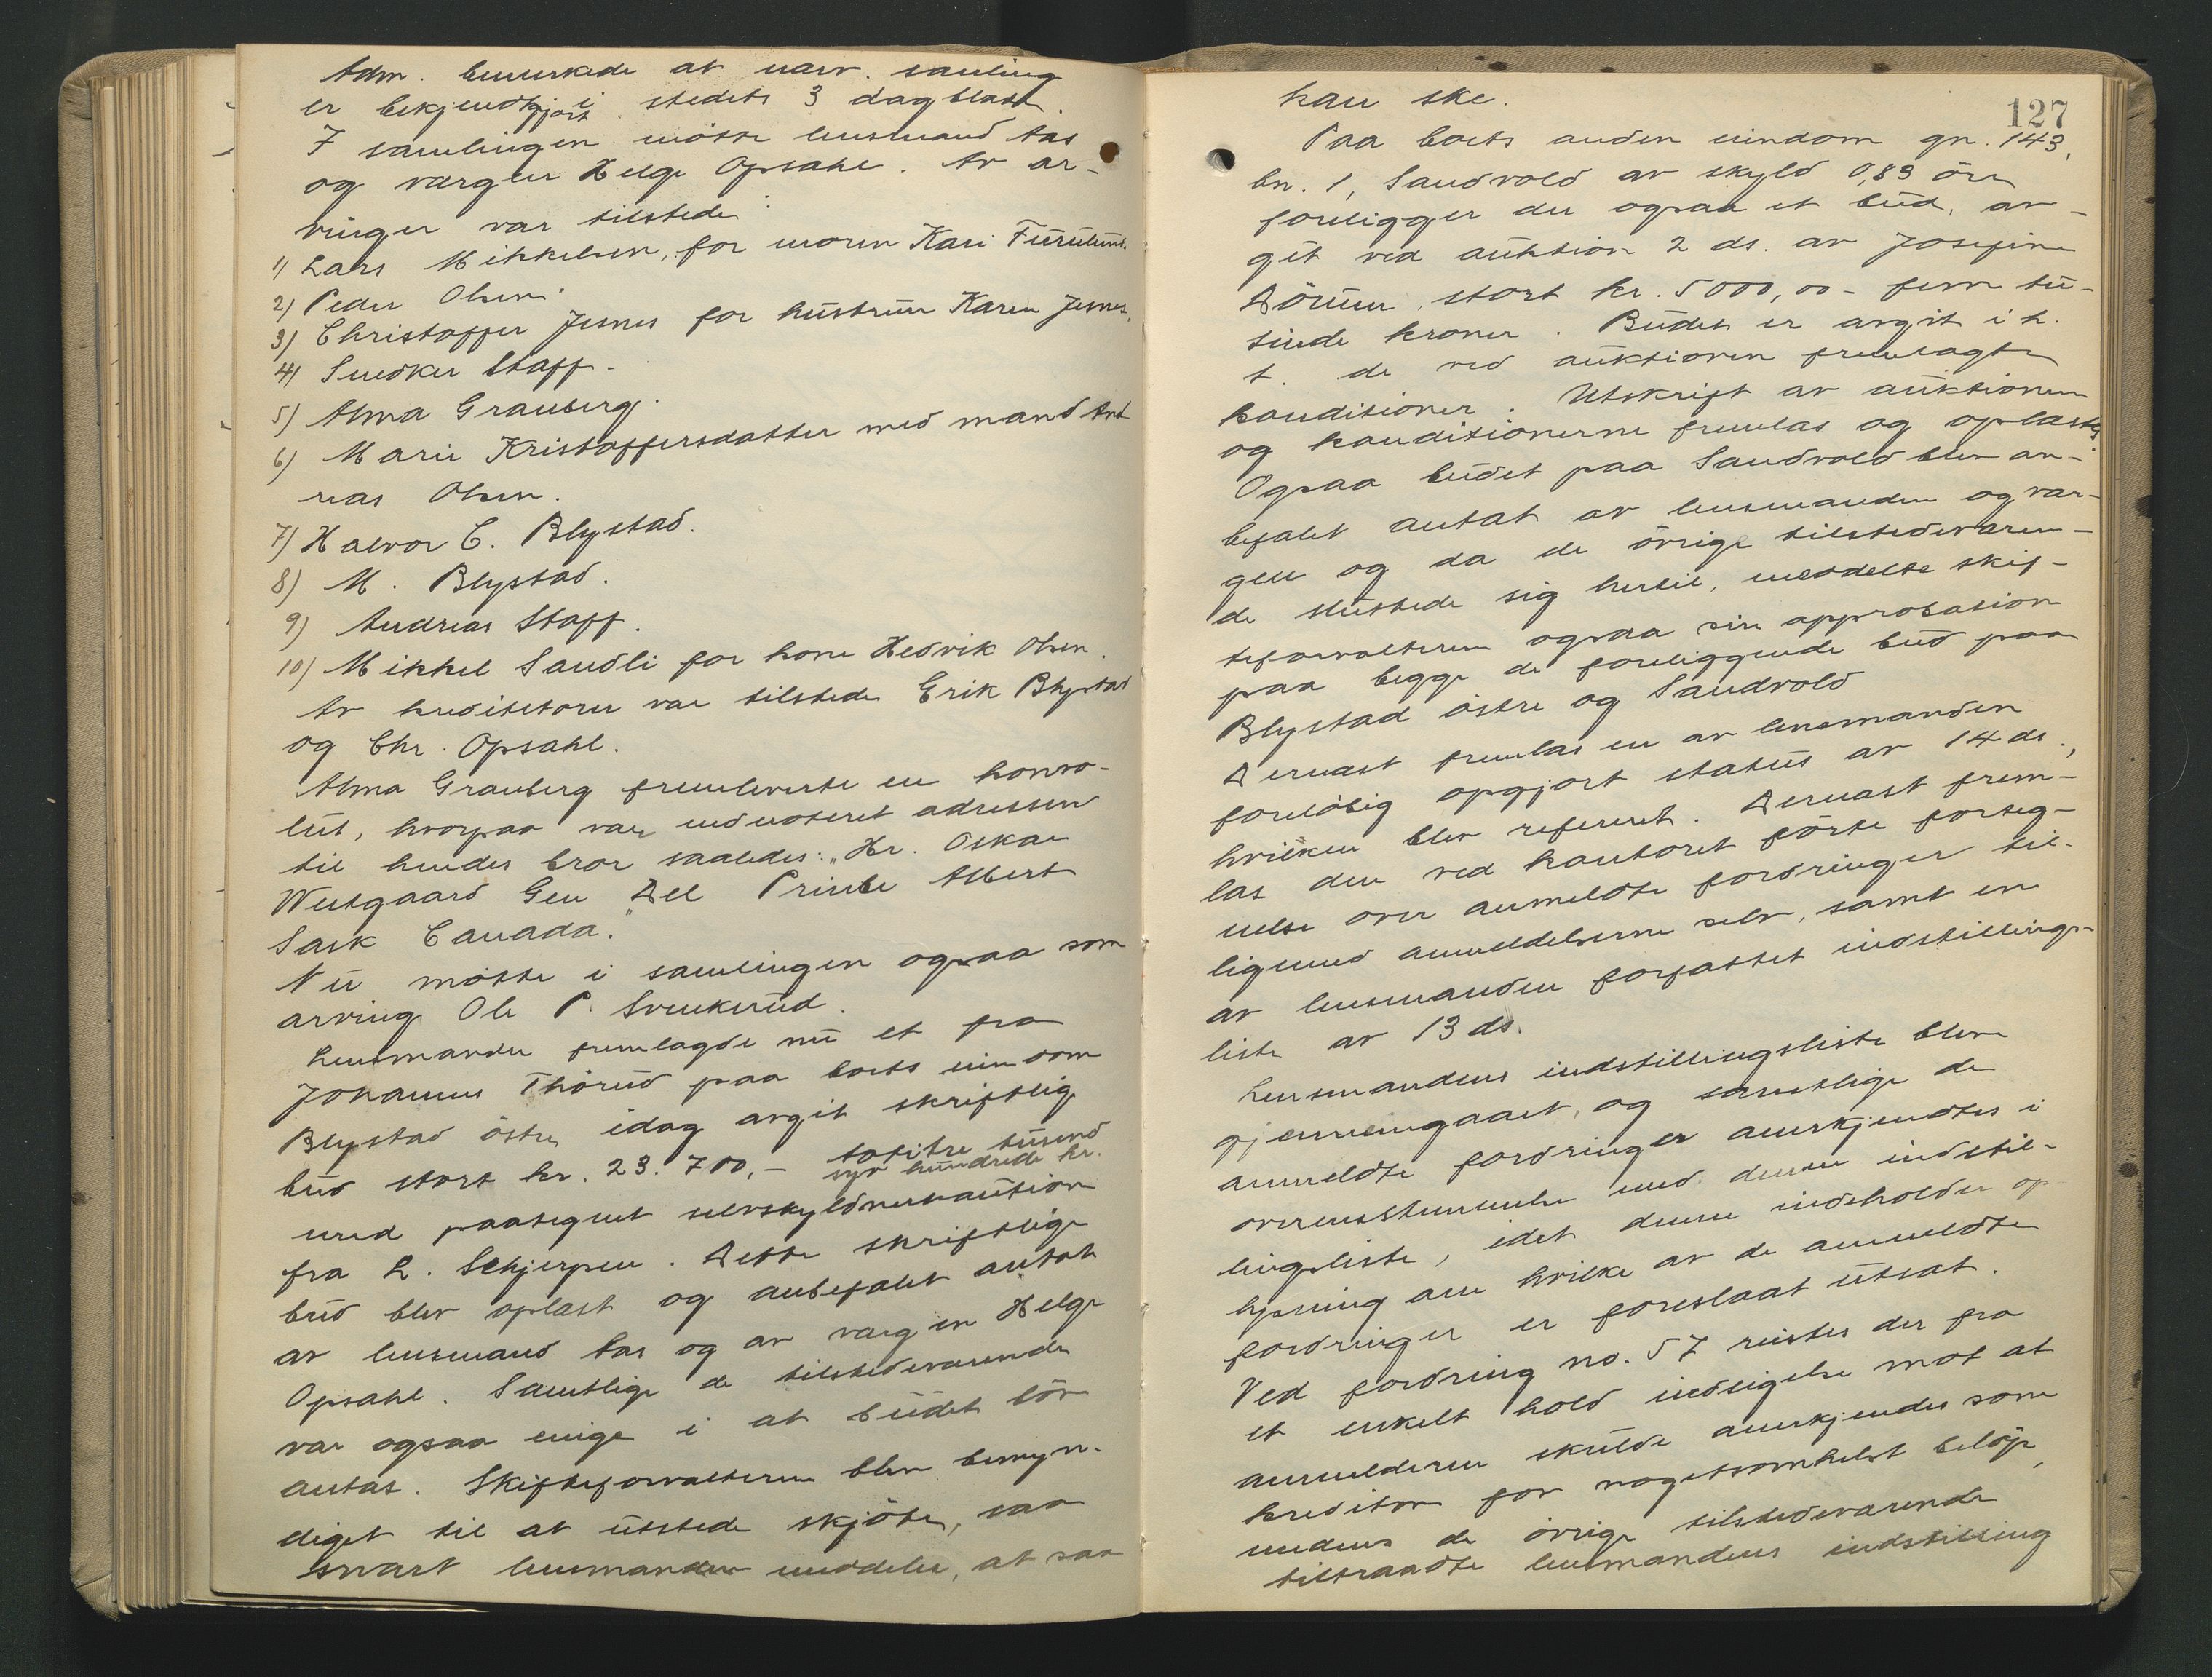 Adm. bemerkede at nærv. samling
er bekjendtgjort i stedets 3 dagblade.
I samlingen møtte lensmand Aas
og værgen Helge Opsahl. Av ar-
vinger var tilstede:
1) Lars Mikkelsen, for moren Kari Furulund.
2) Peder Olsen.
3) Christoffer Jesnes for hustruen Karen Jesnes.
4) Snedker Staff.
5) Alma Granberg.
6) Marie Kristoffersdatter med mand And
reas Olsen.
7) Halvor C. Blystad.
8) M. Blystad.
9) Andreas Staff.
10) Mikkel Sandli for kone Hedvik Olsen.
Av kreditorer var tilstede Erik Blystad
og Chr. Opsahl.
Alma Granberg fremleverte en konvo-
lut, hvorpaa var nednoteret adressen
til hendes bror saaledes: "Hr. Oskar
Westgaard Gen Del Prinbe Albert
Sask Canada."
Nu møtte i samlingen ogsaa som
arving Ole P. Svenkerud.
Lensmanden fremlagde nu et fra
Johannes Thørud paa boets eiendom
Blystad østre idag avgit skriftlig
bud stort kr. 23.700,- totitre tusend
syv hundrede kr.
med paategnet selvskyldnerkaution
fra L. Schjerpen. Dette skriftlige
bud blev oplæst og anbefalet antat
av lensmand Aas og av værgen Helge
Opsahl. Samtlige de tilstedeværende
var ogsaa enige i at budet bør
antas. Skifteforvalteren blev bemyn-
diget til at utstede skjøte, saa
snart lensmanden meddeler, at saa
127
kan ske.
Paa boets anden eiendom gn. 143,
bn. 1, Sandvold av skyld 0,83 øre
foreligger der ogsaa et bud, av-
git ved auktion 2 ds. av Josefine
Dørum, stort kr. 5000,00 - fem tu-
sinde kroner. Budet er avgit i h.
t. de ved auktionen fremlagte
konditioner. Utskrift av auktionen
og konditionerne fremlas og oplæstes
Ogsaa budet paa Sandvold blev an-
befalet antat av lensmanden og vær-
gen og da de øvrige tilstedeværen-
de sluttede sig hertil, meddelte skif-
teforvalteren ogsaa sin approbation
paa begge de foreliggende bud paa
Blystad østre og Sandvold
Dernæst fremlas en av lensmanden
foreløbig opgjort status av 14 ds.,
hvilken blev referert. Dernæst frem-
las den ved kontoret førte forteg-
nelse over anmeldte fordringer til-
ligemed anmeldelserne selv, samt en
av lensmanden forfattet indstillings-
liste av 13 ds.
Lensmandens indstillingsliste blev
gjennemgaaet, og samtlige de
anmeldte fordringer anerkjendtes i
overensstemmelse med denne indstil-
lingsliste, idet denne indeholder op
lysning om hvilke av de anmeldte
fordringer er foreslaat utsat.
Ved fordring no. 57 reistes der fra
et enkelt hold indsigelse mot at
anmelderen skulde anerkjendes som
kreditor for nogetsomhelst beløp,
medens de øvrige tilstedeværende
tiltraadte lensmandens indstilling